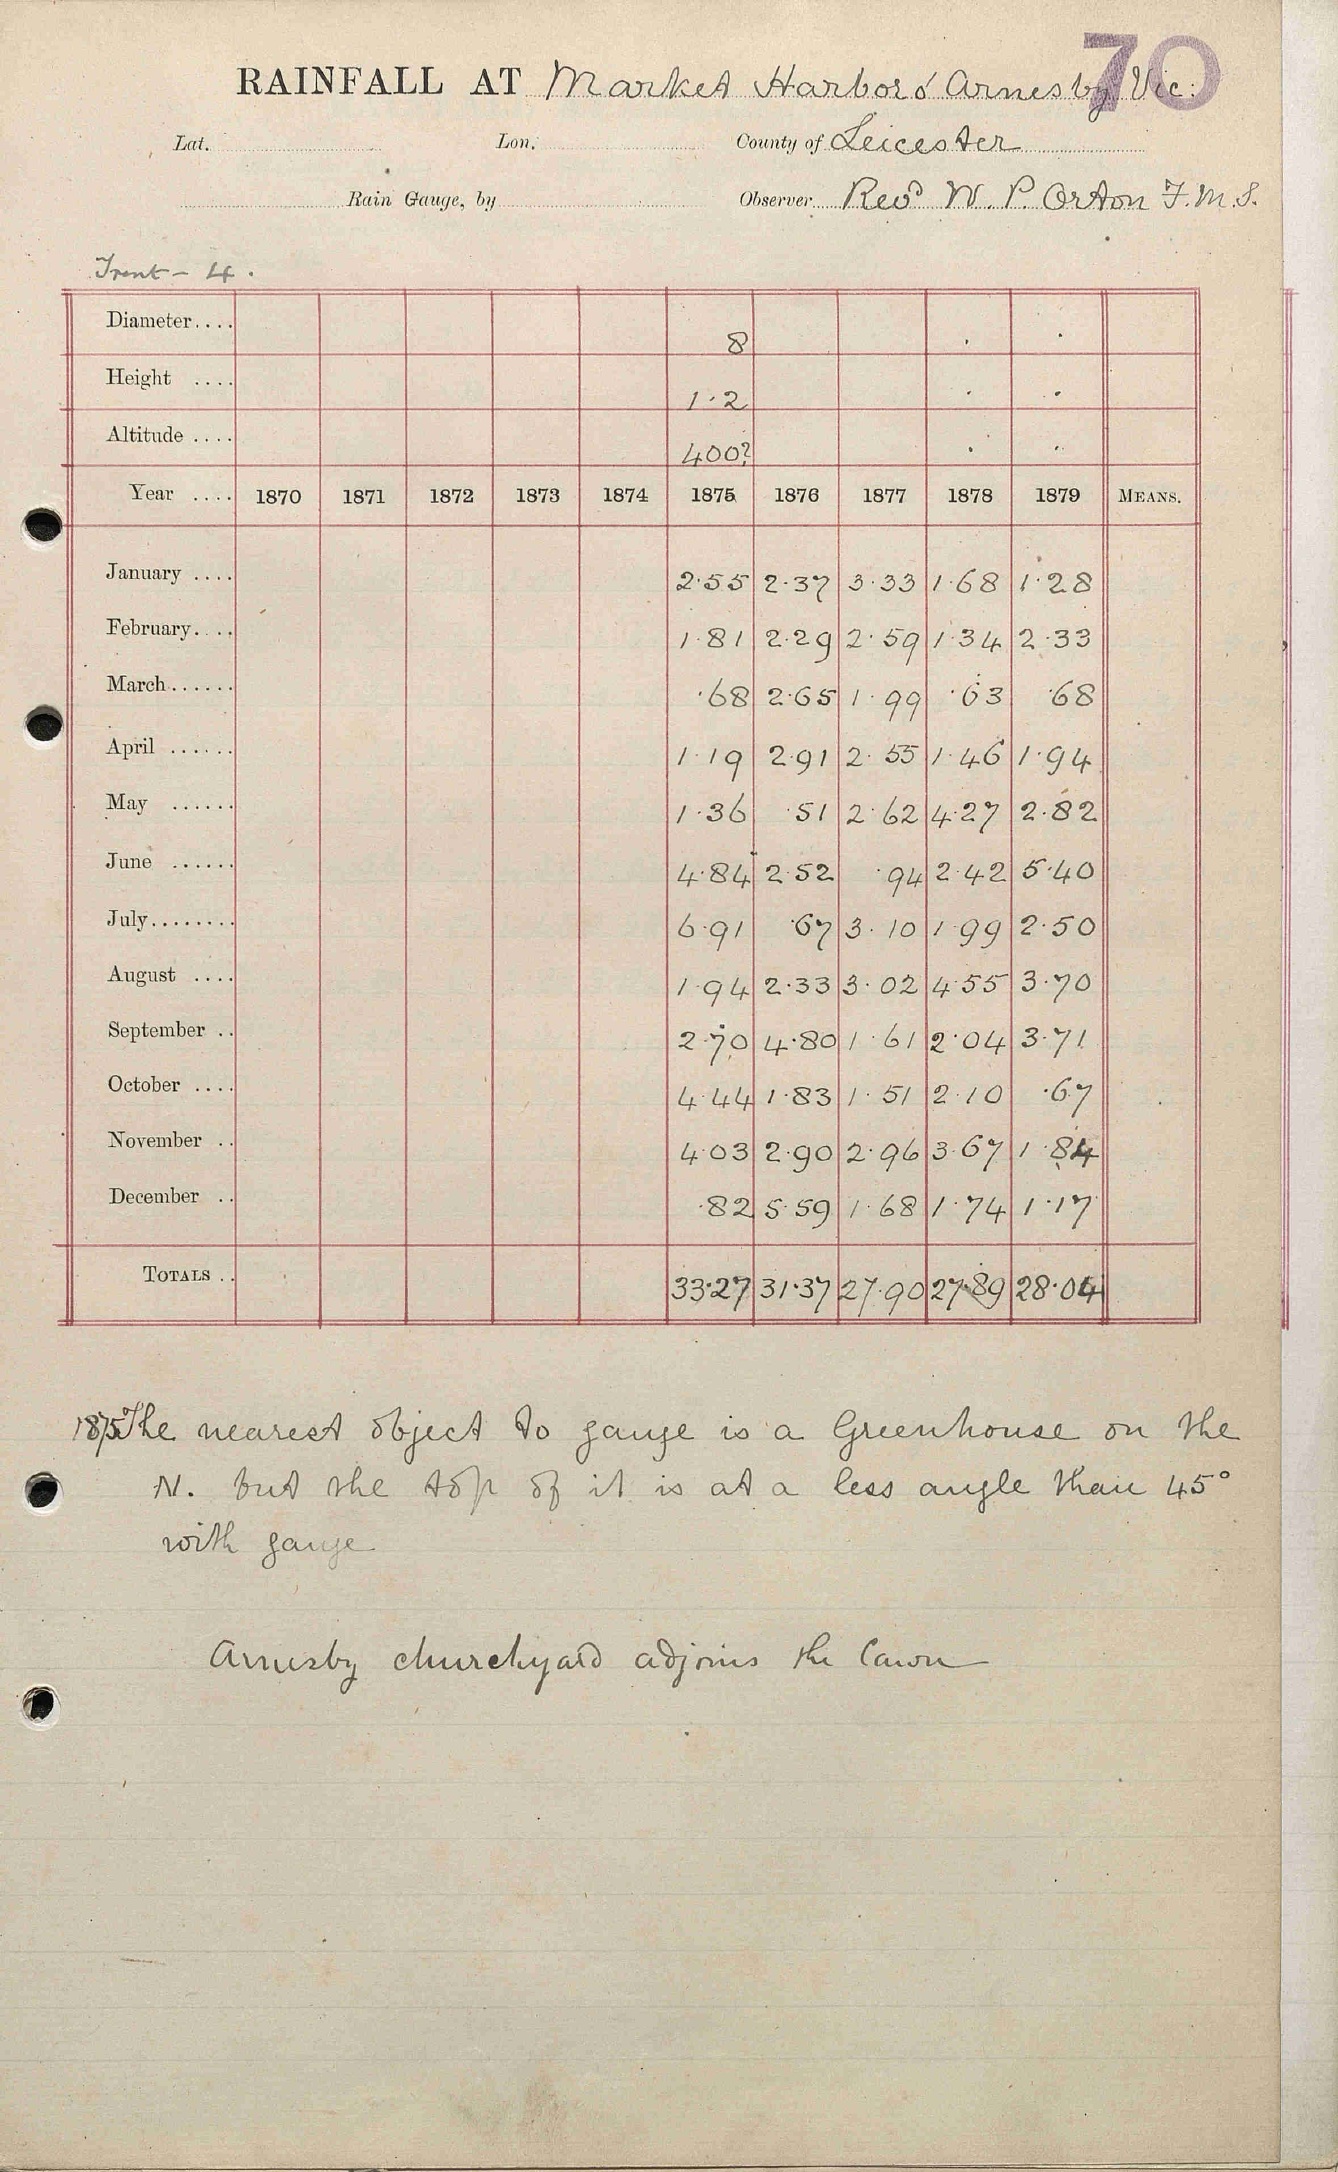 70
RAINFALL AT Market Harboro' Arnesby Vic:
Lat. Lon. County of Leicester
Rain Gauge, by Observer Revd W. P. Orton F.M.S.
Trent - 4.
Diameter.... 8 . .
Height .... 1.2 . .
Altitude .... 400? . .
Year .... 1870 1871 1872 1873 1874 1875 1876 1877 1878 1879 MEANS.
January .... 2.55 2.37 3.33 1.68 1.28
February.... 1.81 2.29 2.59 1.34 2.33
March...... .68 2.65 1.99 .63 .68
April ...... 1.19 2.91 2.55 1.46 1.94
May ...... 1.36 .51 2.62 4.27 2.82
June ...... 4.84 2.52 .94 2.42 5.40
July........ 6.91 .67 3.10 1.99 2.50
August .... 1.94 2.33 3.02 4.55 3.70
September .. 2.70 4.80 1.61 2.04 3.71
October .... 4.44 1.83 1.51 2.10 .67
November .. 4.03 2.90 2.96 3.67 1.84
December .. .82 5.59 1.68 1.74 1.17
TOTALS .. 33.27 31.37 27.90 27.89 28.04
1875 The nearest object to gauge is a Greenhouse on the
N. but the top of it is at a less angle than 45°
with gauge
Arnesby churchyard adjoins the lawn